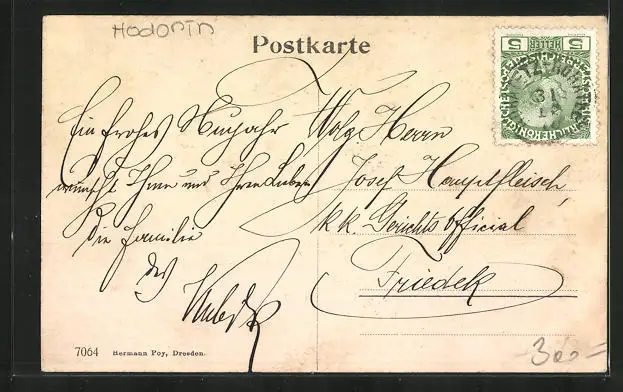 Hodonin
Postkarte
5 HELLER 5
Ein frohes Neujahr
wünscht Ihnen und Ihren Lieben
die Familie
des
Wolg. Herrn
Josef Hauptfleisch,
k. k. Gerichts Official
Friedek
7064 Hermann Poy, Dresden.
300-